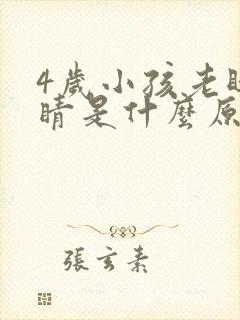 4歲小孩老
睛是什麼原
張玄素